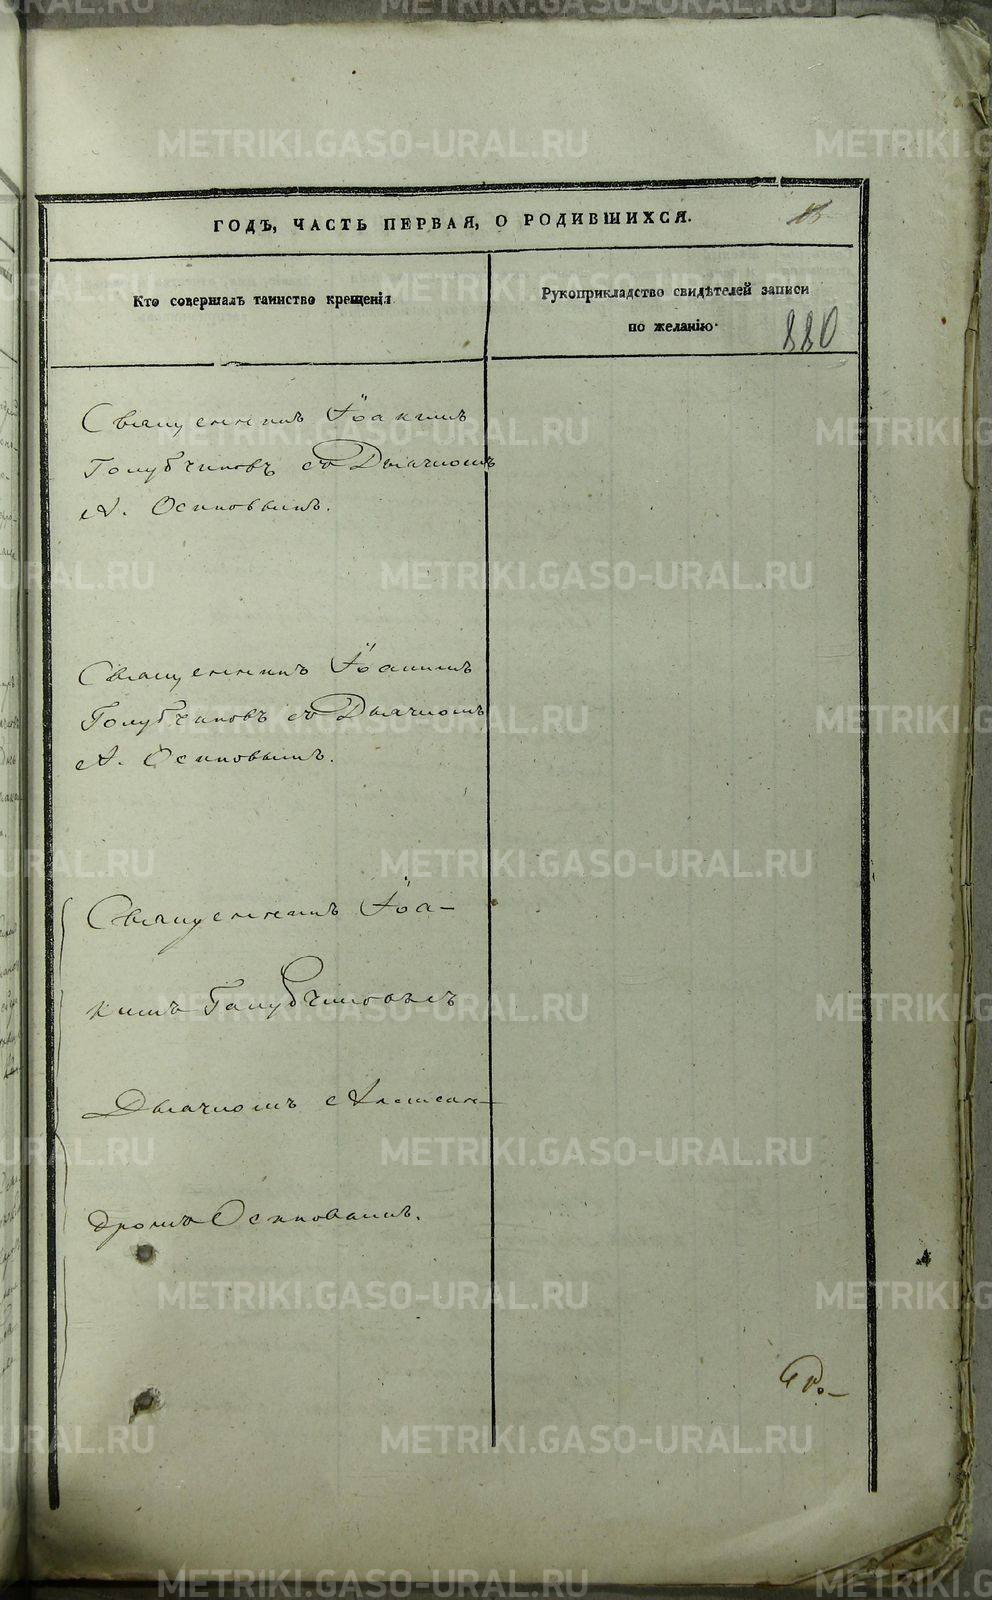 ГОДЪ, ЧАСТЬ ПЕРВАЯ, О РОДИВШИХСЯ.
Кто совершалъ таинство крещенія
Рукоприкладство свидѣтелей записи
по желанію.
880
Священникъ Іоакимъ
Голубчиковъ съ Дьячкомъ
А. Осиповымъ.
Священникъ Іоакимъ
Голубчиковъ съ Дьячкомъ
А. Осиповымъ.
Священникъ Іоа-
кимъ Голубчиковъ съ
Дьячкомъ Алексан-
дромъ Осиповымъ.
METRIKI.GASO-URAL.RU